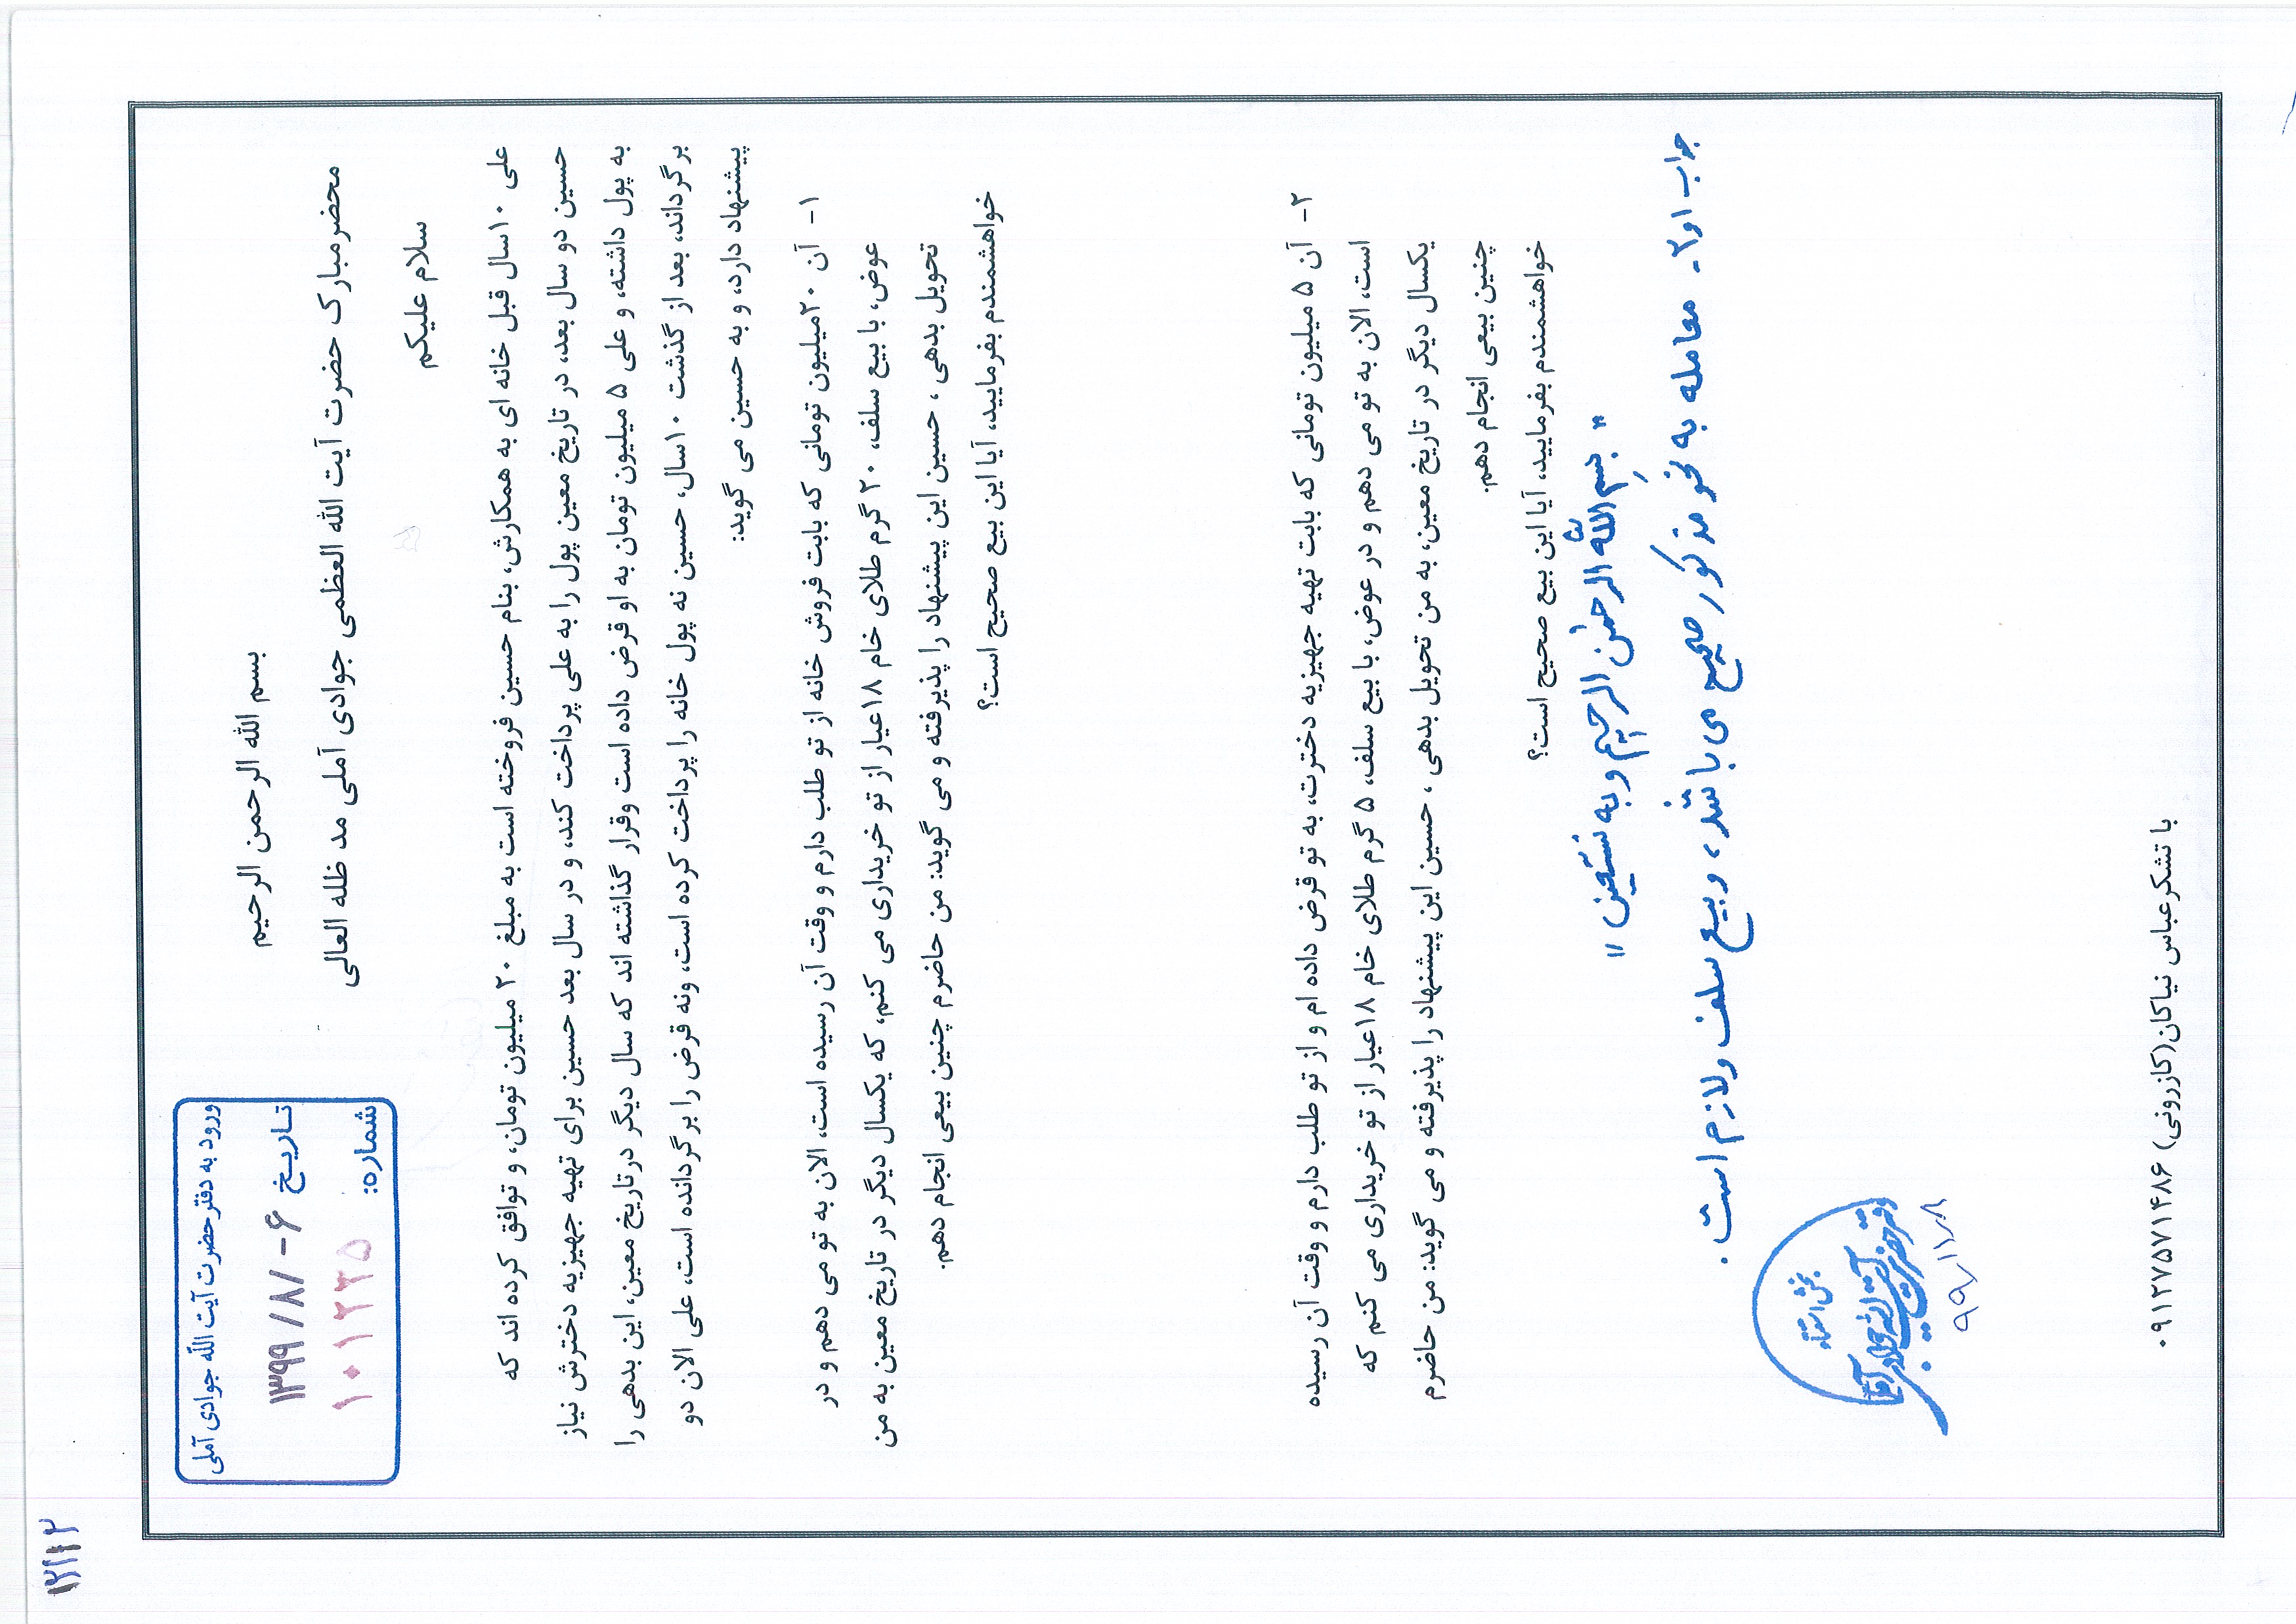 ۱۲۱۱۲
ورود به دفتر حضرت آیت الله جوادی آملی
تاریخ ۱۳۹۹/۸/-۶
شماره: ۱۰۱۲۳۵
بسم الله الرحمن الرحیم
محضرمبارک حضرت آیت الله العظمی جوادی آملی مد ظله العالی
سلام علیکم
علی ۱۰سال قبل خانه ای به همکارش، بنام حسین فروخته است به مبلغ ۲۰ میلیون تومان، و توافق کرده اند که
حسین دو سال بعد، در تاریخ معین پول را به علی پرداخت کند، و در سال بعد حسین برای تهیه جهیزیه دخترش نیاز
به پول داشته، و علی ۵ میلیون تومان به او قرض داده است وقرار گذاشته اند که سال دیگر درتاریخ معین، این بدهی را
برگرداند، بعد از گذشت ۱۰سال، حسین نه پول خانه را پرداخت کرده است، ونه قرض را برگردانده است، علی الان دو
پیشنهاد دارد، و به حسین می گوید:
۱- آن ۲۰میلیون تومانی که بابت فروش خانه از تو طلب دارم و وقت آن رسیده است، الان به تو می دهم و در
عوض، با بیع سلف، ۲۰ گرم طلای خام ۱۸عیار از تو خریداری می کنم، که یکسال دیگر در تاریخ معین به من
تحویل بدهی ، حسین این پیشنهاد را پذیرفته و می گوید: من حاضرم چنین بیعی انجام دهم.
خواهشمندم بفرمایید، آیا این بیع صحیح است؟
۲- آن ۵ میلیون تومانی که بابت تهیه جهیزیه دخترت، به تو قرض داده ام و از تو طلب دارم و وقت آن رسیده
است، الان به تو می دهم و در عوض، با بیع سلف، ۵ گرم طلای خام ۱۸عیار از تو خریداری می کنم که
یکسال دیگر در تاریخ معین، به من تحویل بدهی ، حسین این پیشنهاد را پذیرفته و می گوید: من حاضرم
چنین بیعی انجام دهم.
خواهشمندم بفرمایید، آیا این بیع صحیح است؟
" بسم الله الرحمن الرحیم و به نستعین "
جواب ۱و۲- معامله به نحو مذکور صحیح می باشد، و بیع سلف و لازم است.
بخش استفتاء
دفتر حضرت آیت الله جوادی آملی
۹۹/۱۱/۸
با تشکرعباس نیاکان(کازرونی) ۰۹۱۲۷۵۷۱۴۸۶